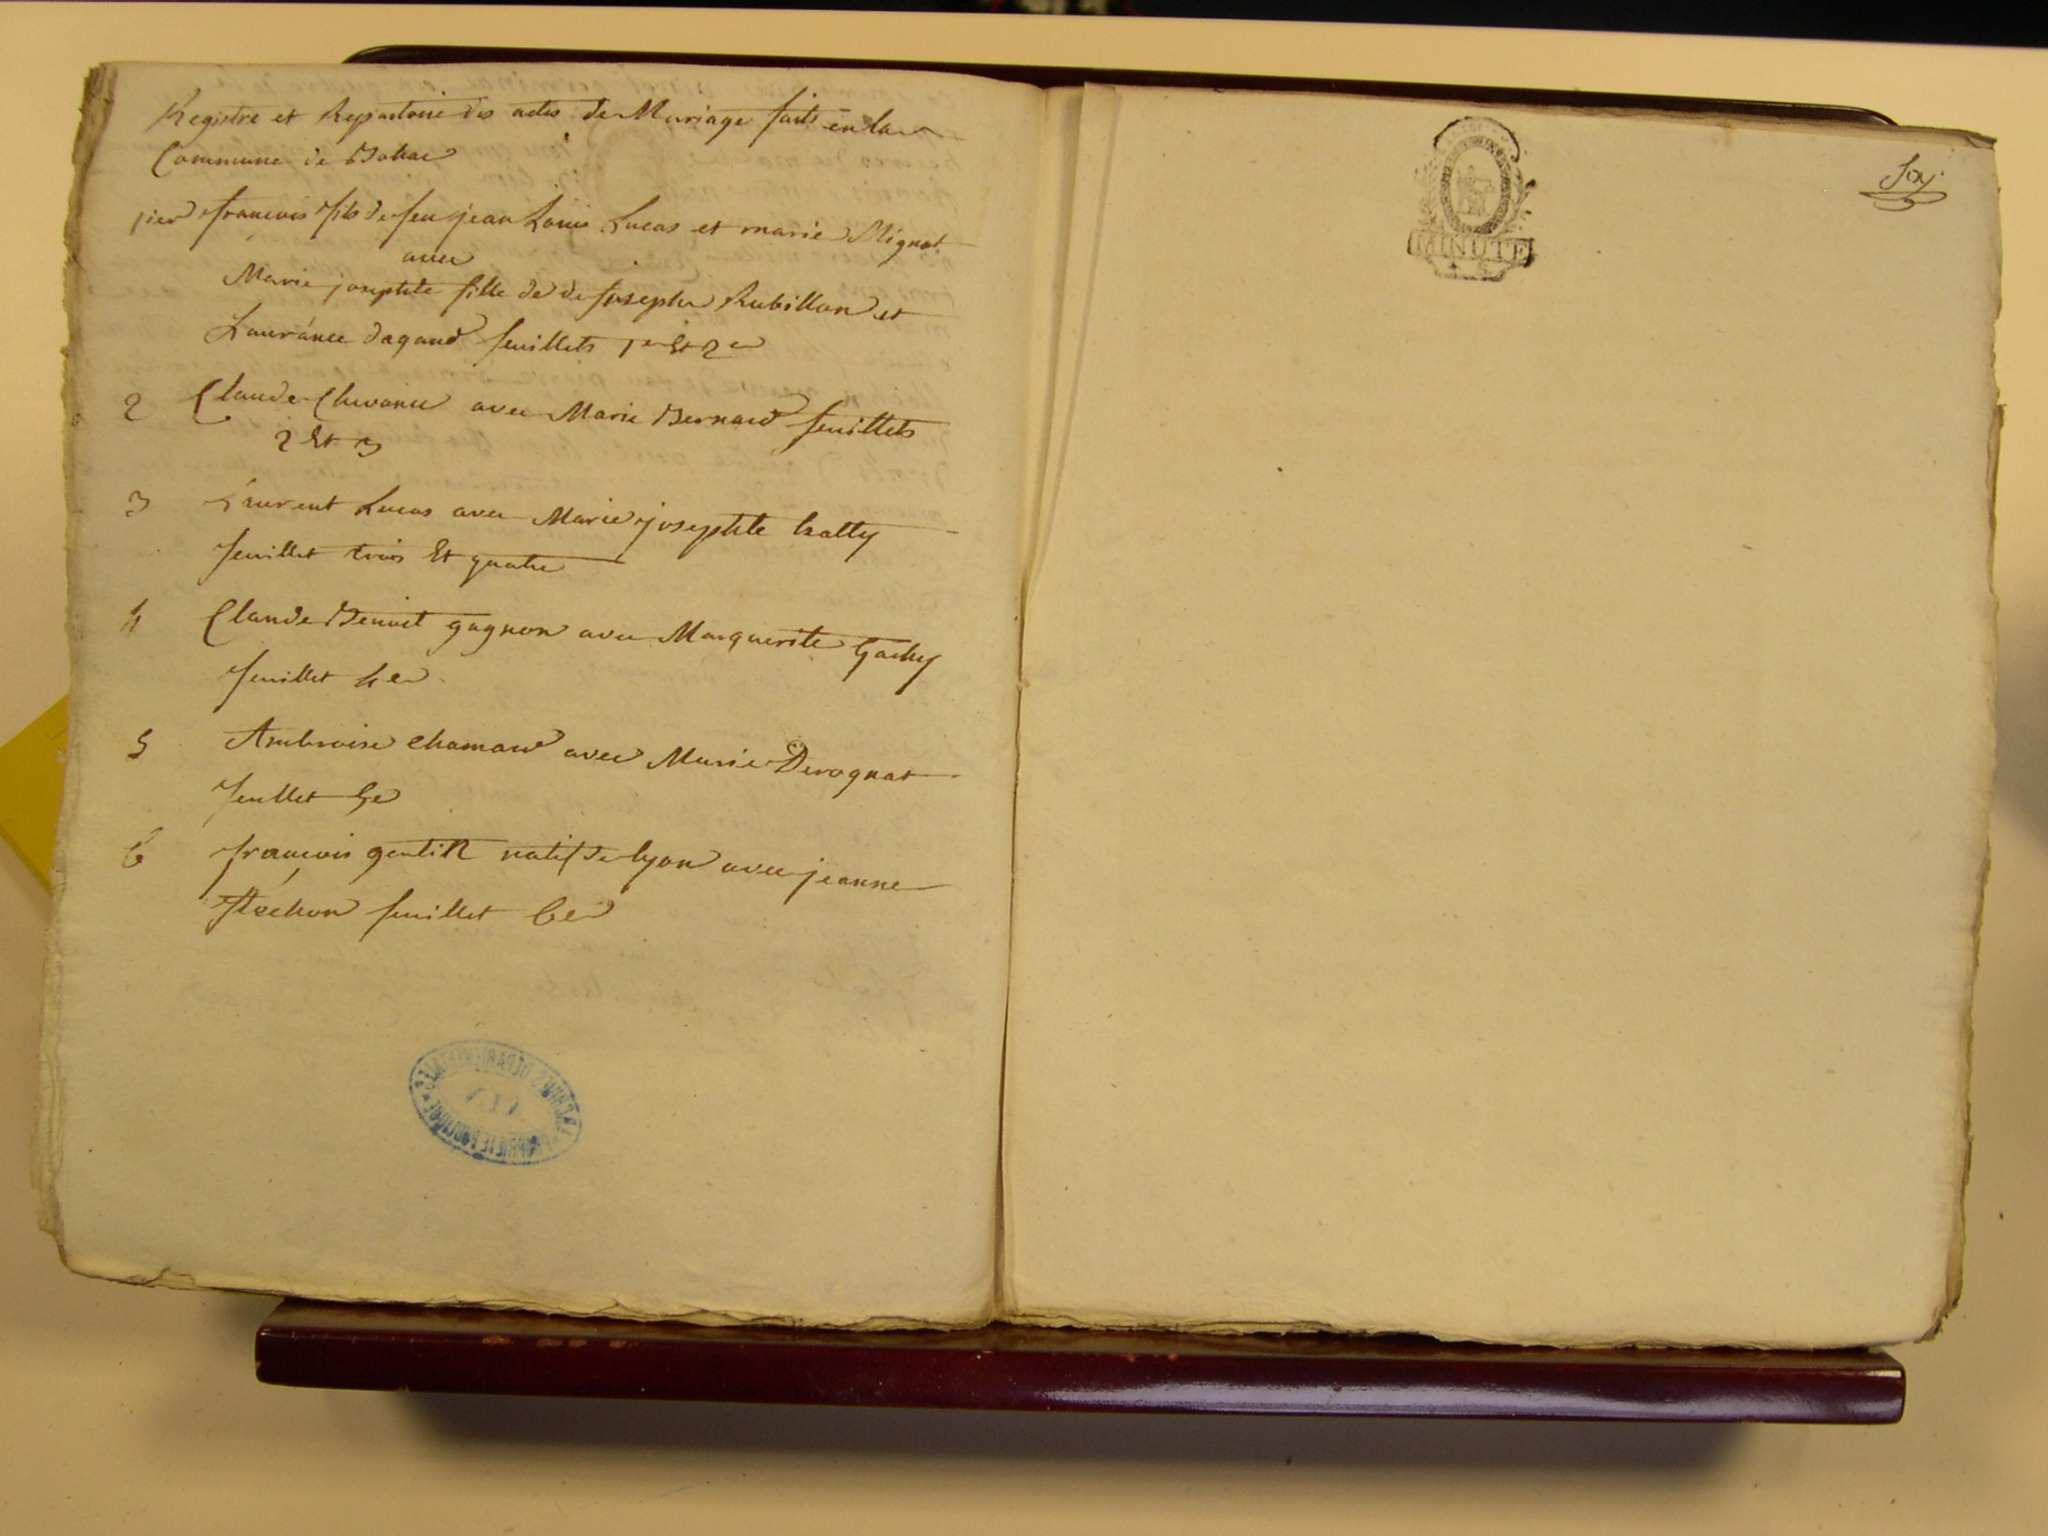 Registre et Repertoire des actes de Mariage faits en la
Commune de Bohas
1ier françois fils de feu jean Louis Lucas et marie Mignot
avec
Marie josephte fille de de joseph Rubillon et
Laurance dagand feuillets 1er Et 2e
2 Claude Chavanu avec Marie Bernard feuillets
2 Et 3
3 Laurent Lucas avec Marie josephte
feuillet trois Et quatre
4 Claude Benoit gagnon avec Marguerite Gachy
feuillet 4e
5 Ambroise chamard avec Marie Derognat
feuillet 5e
6 françois gentill natif de lyon avec jeanne
feuillet 6e
MINUTE